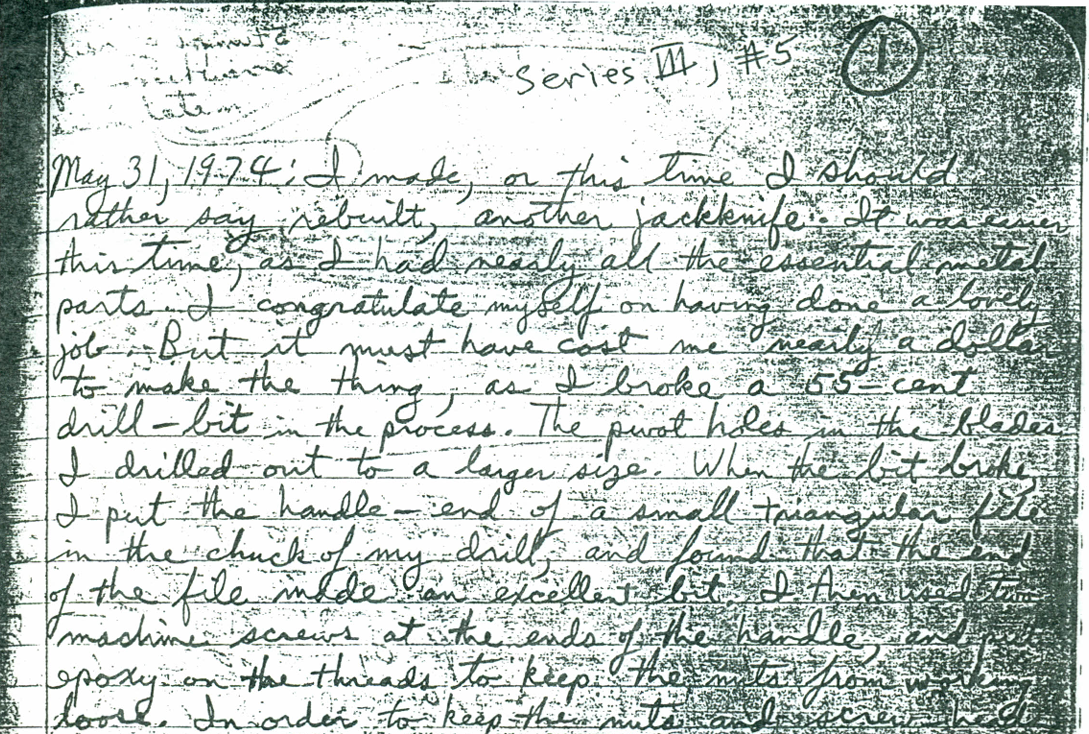 Series III, #5 1
May 31, 1974: I made, or this time I should
rather say rebuilt, another jackknife. It was easier
this time, as I had nearly all the essential metal
parts. I congratulate myself on having done a lovely
job. But it must have cost me nearly a dollar
to make the thing, as I broke a 55-cent
drill-bit in the process. The pivot holes in the blades
I drilled out to a larger size. When the bit broke,
I put the handle-end of a small triangular file
in the chuck of my drill, and found that the end
of the file made an excellent bit. I then used two
machine screws at the ends of the handle, and put
epoxy on the threads to keep the nuts from working
loose. In order to keep the nuts and screw heads